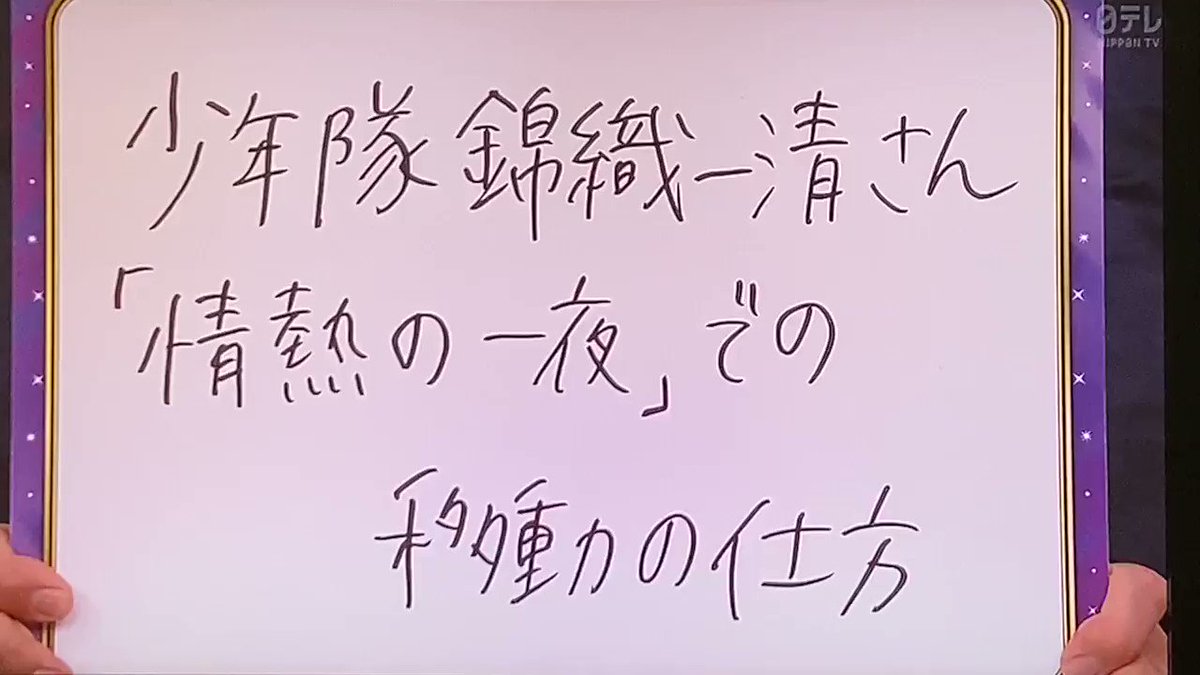 日テレ
NIPPON TV
少年隊 錦織一清さん
「情熱の一夜」での
移動の仕方